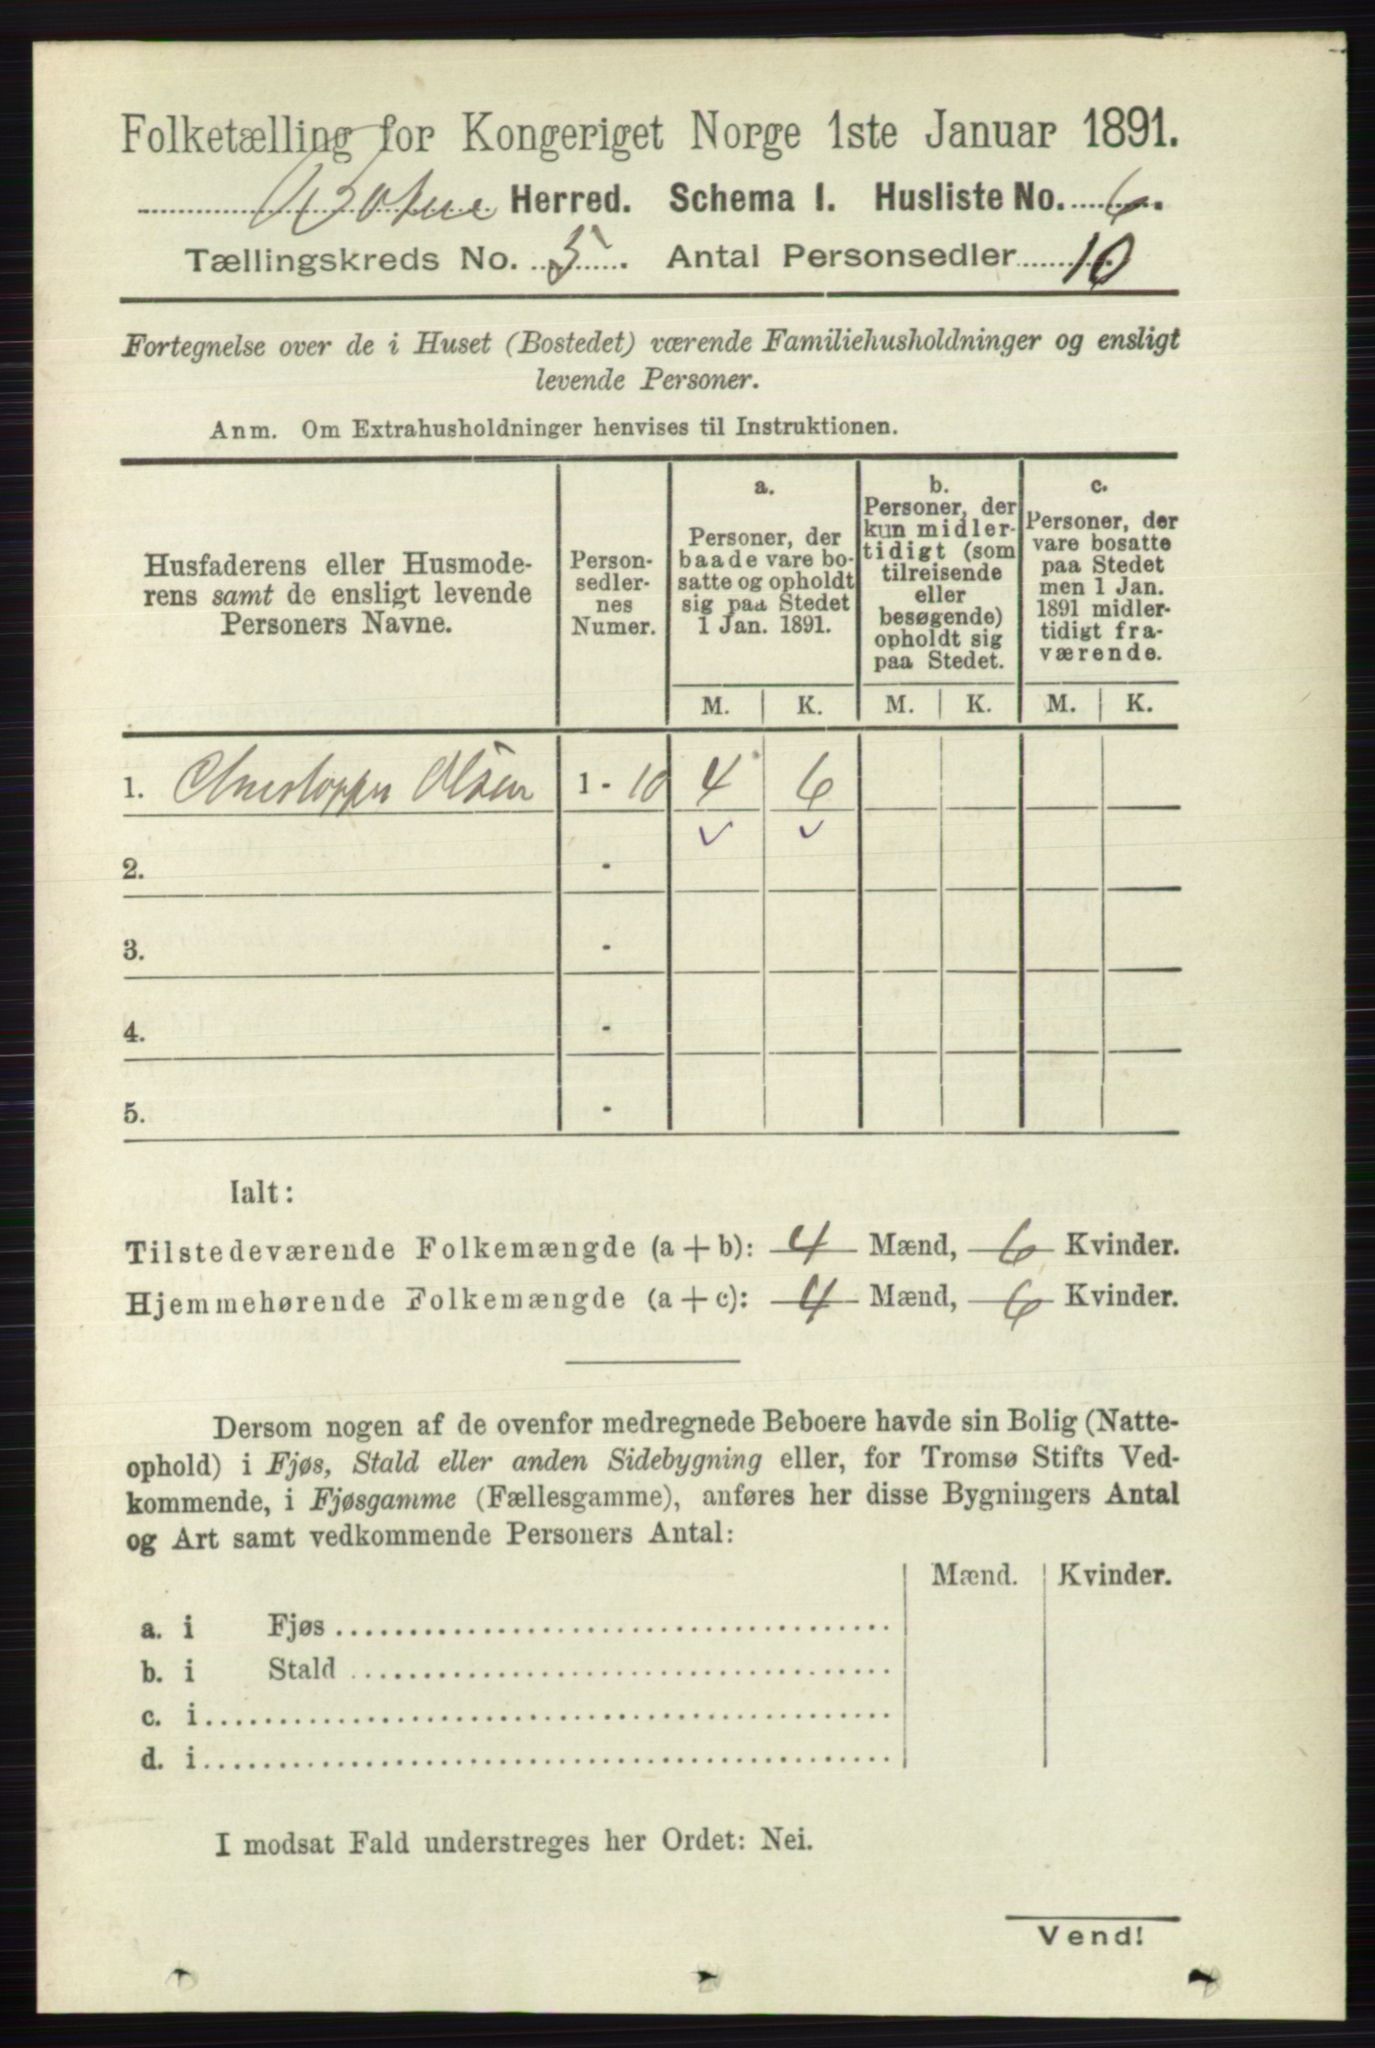 Folketælling for Kongeriget Norge 1ste Januar 1891.
Herred. Schema I. Husliste No. 6.
Tællingskreds No. 5. Antal Personsedler 10
Fortegnelse over de i Huset (Bostedet) værende Familiehusholdninger og ensligt
levende Personer.
Anm. Om Extrahusholdninger henvises til Instruktionen.
Husfaderens eller Husmode-
rens samt de ensligt levende
Personers Navne.
Person-
sedler-
nes
Numer.
a.
Personer, der
baade vare bo-
satte og opholdt
sig paa Stedet
1 Jan. 1891.
b.
Personer, der
kun midler-
tidigt (som
tilreisende
eller
besøgende)
opholdt sig
paa Stedet.
c.
Personer, der
vare bosatte
paa Stedet
men 1 Jan.
1891 midler-
tidigt fra-
værende.
M. K. M. K. M. K.
1. Christopper Olsen 1 - 10 4 6
2. -
3. -
4. -
5. -
Ialt:
Tilstedeværende Folkemængde (a + b): 4 Mænd, 6 Kvinder.
Hjemmehørende Folkemængde (a + c): 4 Mænd, 6 Kvinder.
Dersom nogen af de ovenfor medregnede Beboere havde sin Bolig (Natte-
ophold) i Fjøs, Stald eller anden Sidebygning eller, for Tromsø Stifts Ved-
kommende, i Fjøsgamme (Fællesgamme), anføres her disse Bygningers Antal
og Art samt vedkommende Personers Antal:
Mænd. Kvinder.
a. i Fjøs
b. i Stald
c. i
d. i
I modsat Fald understreges her Ordet: Nei.
Vend!